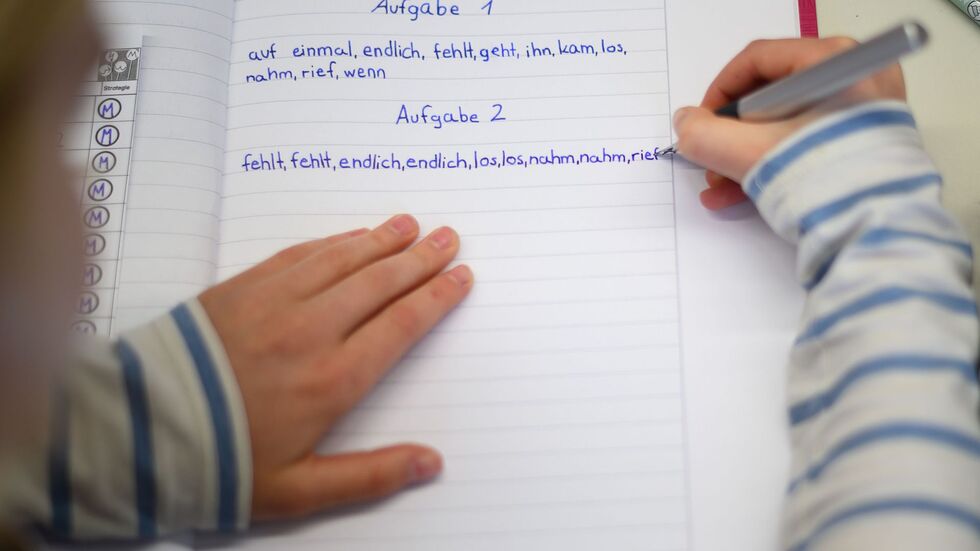 Aufgabe 1
auf einmal, endlich, fehlt, geht, ihn, kam, los,
nahm, rief, wenn
Aufgabe 2
fehlt, fehlt, endlich, endlich, los, los, nahm, nahm, rief
Strategie
M
M
M
M
M
M
M
M
M